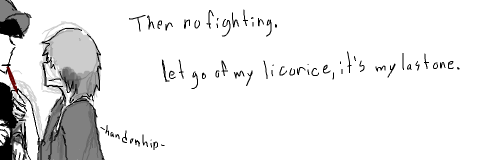 Then no fighting.
let go of my licorice, it's my last one.
-hand on hip-